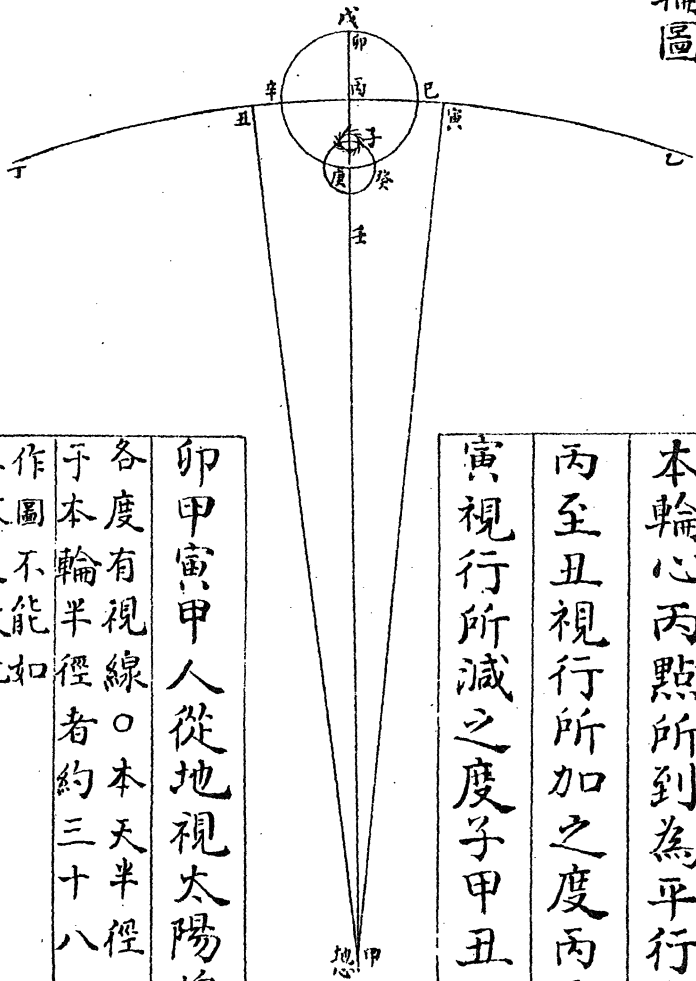 輪圖
戊
卯
辛
丙
巳
丑
寅
丁
乙
子
庚
癸
壬
地心
甲
本輪心丙點所到為平行
丙至丑視行所加之度丙
寅視行所減之度子甲丑
卯甲寅甲人從地視太陽
各度有視線○本天半徑
于本輪半徑者約三十八
作圖不能如